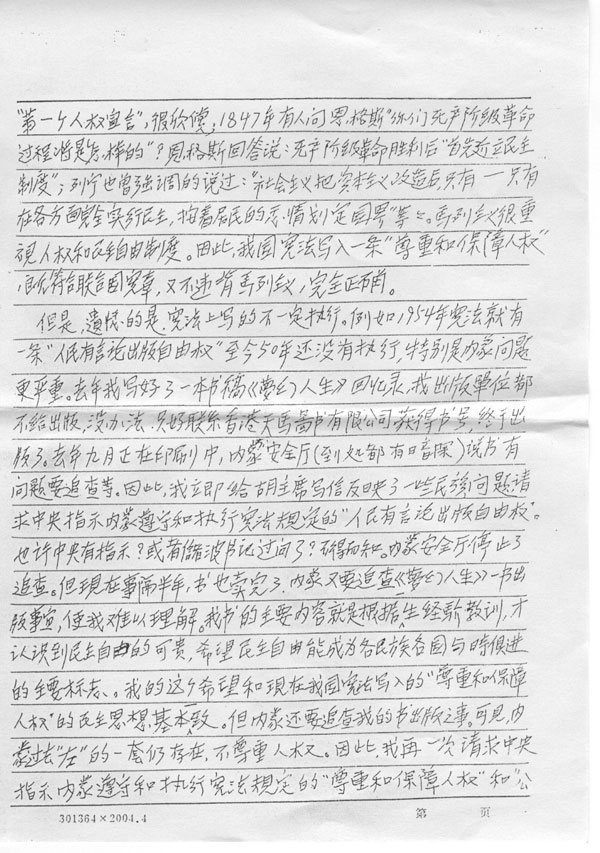 "第一个人权宣言"，很欣傻；1847年有人问恩格斯"你们无产阶级革命
过程将是怎样的"？恩格斯回答说：无产阶级革命胜利后"首先建立民主
制度"；列宁也曾强调的说过："社会主义把资本主义改造后只有一一只有
在各方面完全实行民主，按着居民的恋情划定国界"等等。马列主义很重
视人权和民主自由制度。因此，我国宪法写入一条"尊重和保障人权"
既符合联合国宪章，又不违背马列主义，完全正确。
但是，遗憾的是，宪法上写的不一定执行。例如1954年宪法就有
一条"人民有言论出版自由权"至今50年还没有执行，特别是内蒙问题
更严重。去年我写好了一本书稿《梦幻人生》回忆录，我出版单位都
不给出版，没办法，只好联系香港天马图书有限公司获得书号，终于出
版了。去年九月正在印刷中，内蒙安全厅(到处都有暗探)说书有
问题要追查等。因此，我立即给胡主席写信反映了一些民族问题，请
求中央指示内蒙遵守和执行宪法规定的"人民有言论出版自由权"。
也许中央有指示？或者储波书记过问了？不得而知。内蒙安全厅停止了
追查。但现在事隔半年，书也卖完了，内蒙又要追查《梦幻人生》一书出
版事宜，使我难以理解。我书的主要内容就是根据人生经验教训，才
认识到民主自由的可贵，希望民主自由能成为各民族各国与时俱进
的主要标志。我的这个希望和现在我国宪法写入的"尊重和保障
人权"的民主思想，基本一致。但内蒙还要追查我的书出版之事。可见，内
蒙过去"左"的一套仍存在，不尊重人权。因此，我再一次请求中央
指示内蒙遵守和执行宪法规定的"尊重和保障人权"和"公
301364×2004.4 第 页